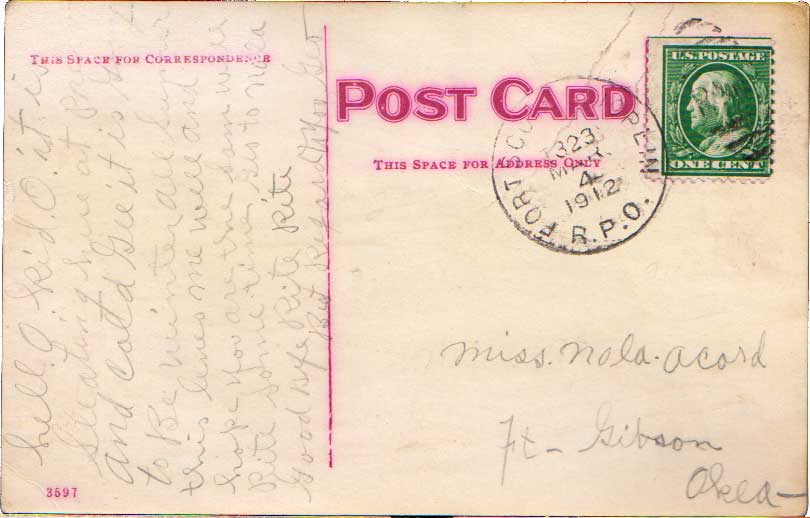 THIS SPACE FOR CORRESPONDENCE
POST CARD
THIS SPACE FOR ADDRESS ONLY
U.S. POSTAGE
ONE CENT
FORT
323
MAR
4
1912
R.P.O.
hell. O kid. O it is
Sleating here at
and cold Gee it is
to Be Winter all
this leaves me well and
hope you are the same well
Rite some time. to Nola
Goodbye Rite Rite
Best Regard to You Geo
Miss. Nola. Acord
Ft - Gibson
Okla -
3597